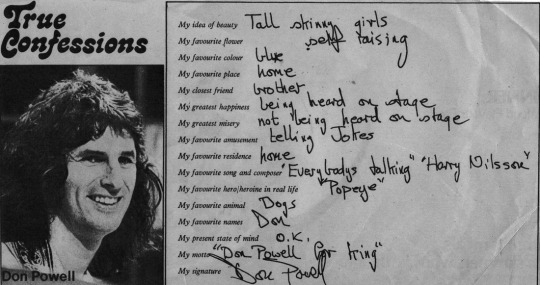 True
Confessions
My idea of beauty Tall skinny girls
My favourite flower self raising
My favourite colour blue
My favourite place home
My closest friend brother
My greatest happiness being heard on stage
My greatest misery not being heard on stage
My favourite amusement telling Jokes
My favourite residence home
My favourite song and composer "Everybodys talking" "Harry Nilsson"
My favourite hero/heroine in real life "Popeye"
My favourite animal Dogs
My favourite names Don
My present state of mind O.K.
My motto "Don Powell for King"
My signature Don Powell
Don Powell